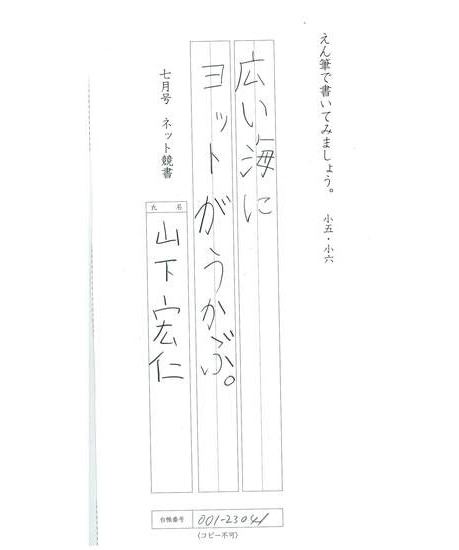 えん筆で書いてみましょう。 小五・小六
広い海に
ヨットがうかぶ。
七月号 ネット競書
氏名
山下宏仁
台帳番号 001-23041
(コピー不可)